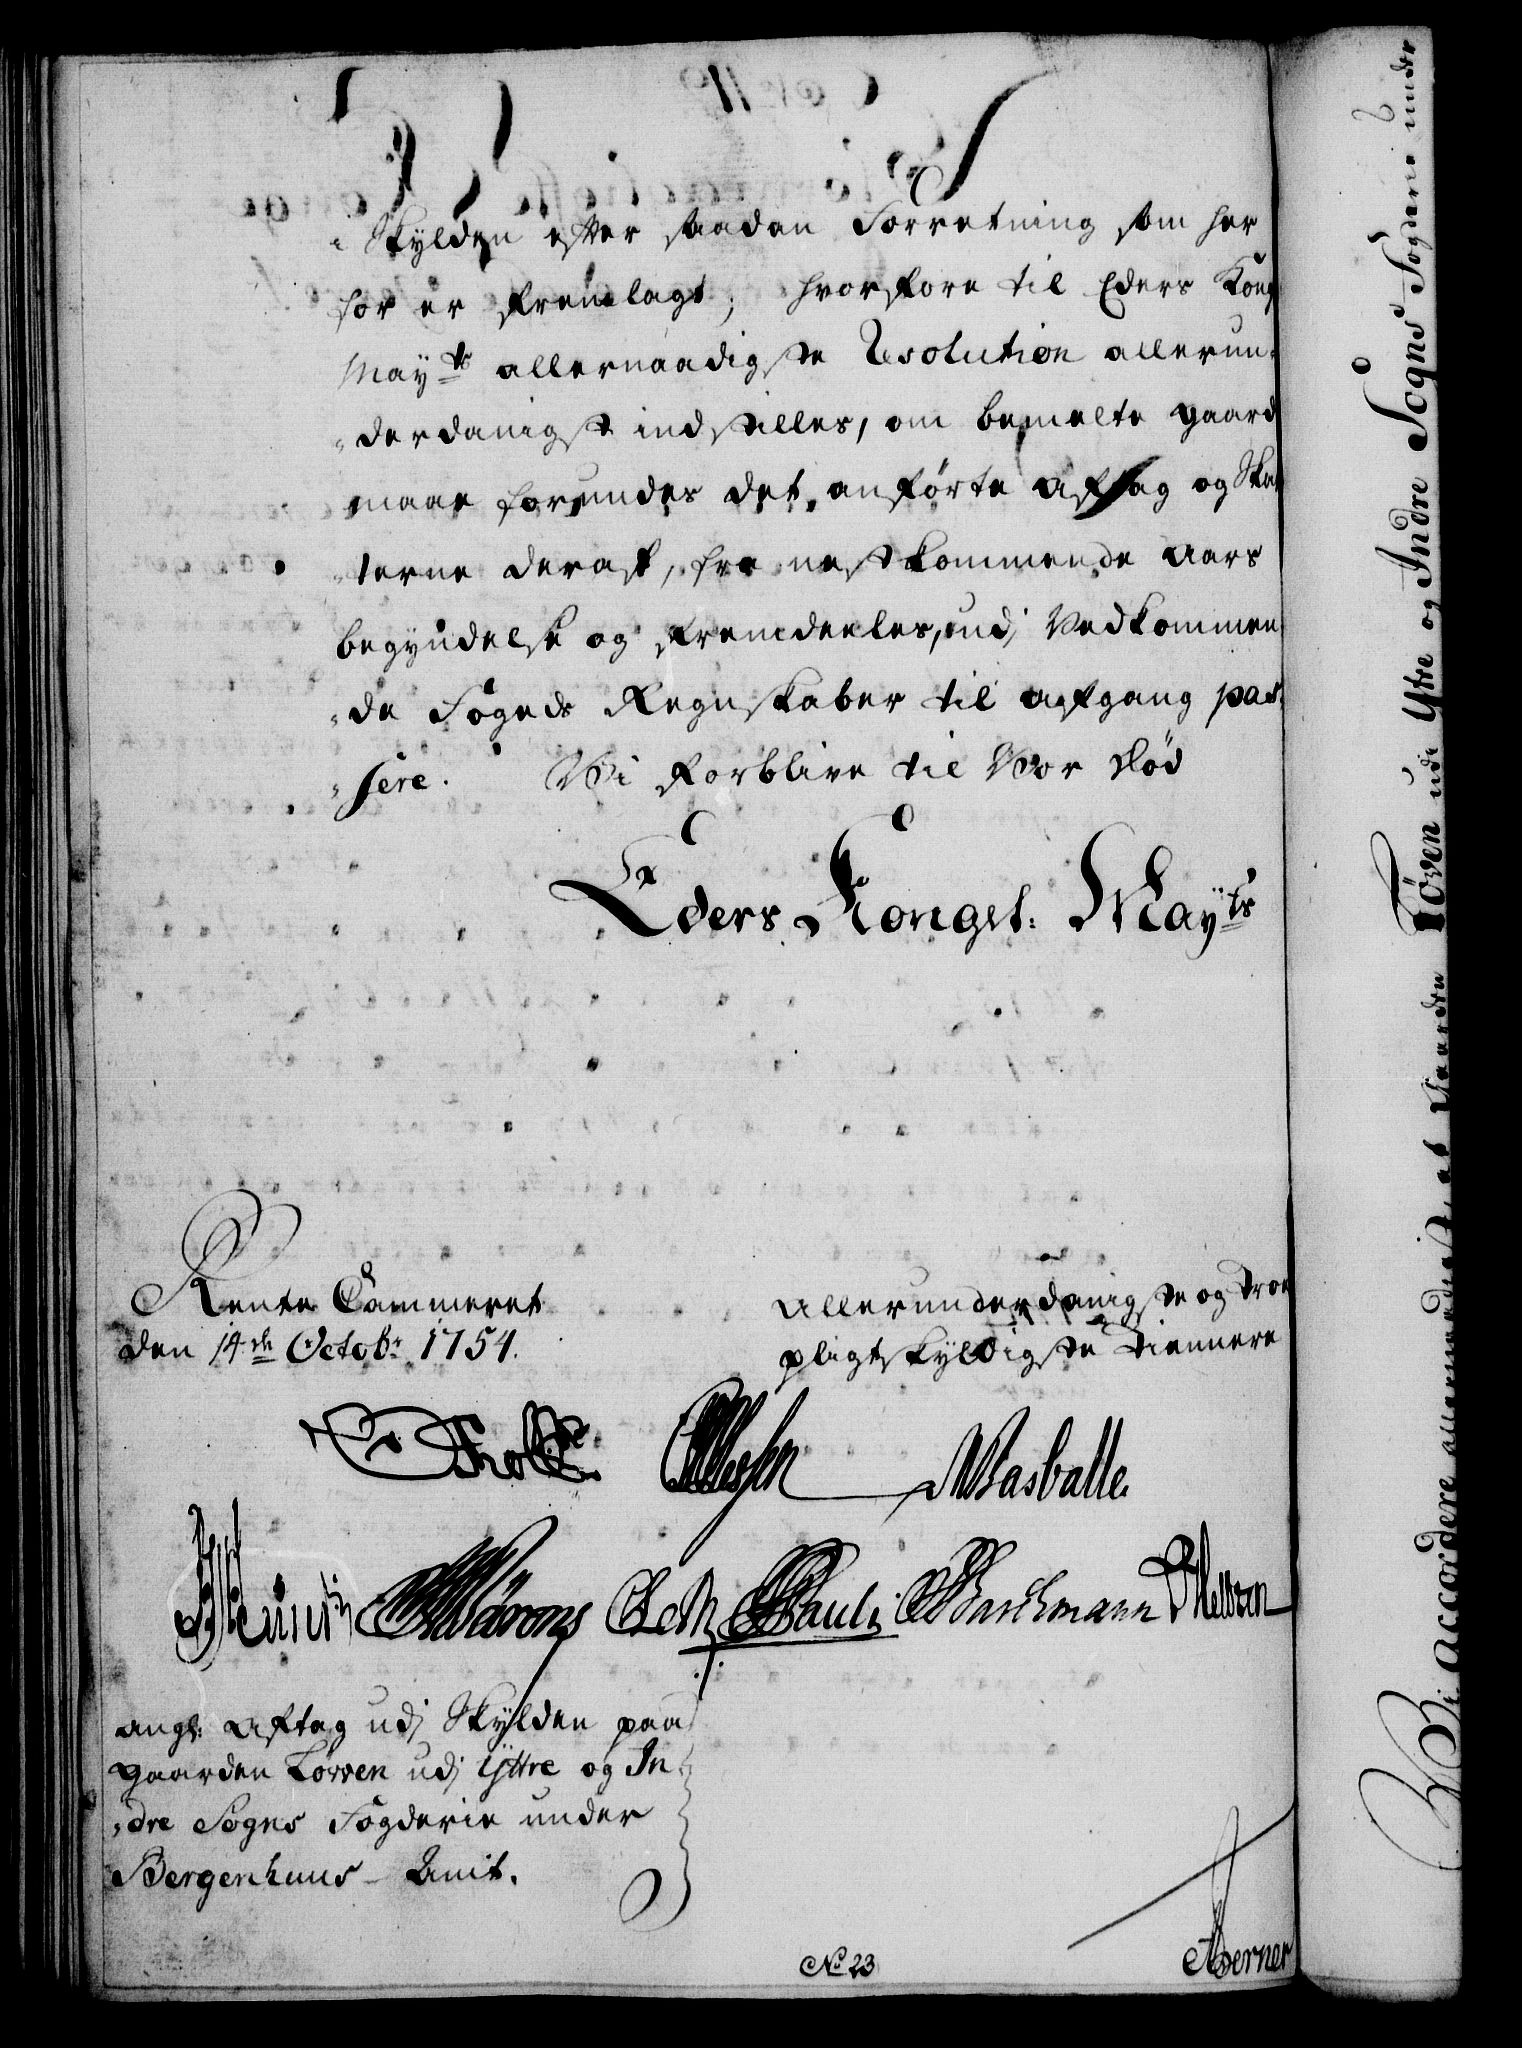 i Skylden efter saadan Forretning som her
for er fremlagt; hvorfore til Eders Kong
Mayts allernaadigste Resolution allerun-
derdanigst indstilles, om bemelte gaard
maae forundes det anførte aftag og Skat
terne deraf, fra nestkommende aars
begyndelse og fremdeeles, udj Vedkommen
de Fogeds Regnskaber til afgang pas-
sere. Vi forblive til Vor død
Eders Kongel: Mayts
Rente Cammeret
den 14de Octobr 1754.
Allerunderdanigste og troe
pligtskyldigste Tiennere
Holstein Wasballe.
Pauli Barchmann
angl: Aftag udj Skylden paa
gaarden Tørven udj Yttre og In-
dre Sogns Fogderie under
Bergenhuus Amt.
No 23
Werner
Vi accordere allernaadigst, at Gaarden Tøven udi Yttre og Indre Sogns Fogderie under